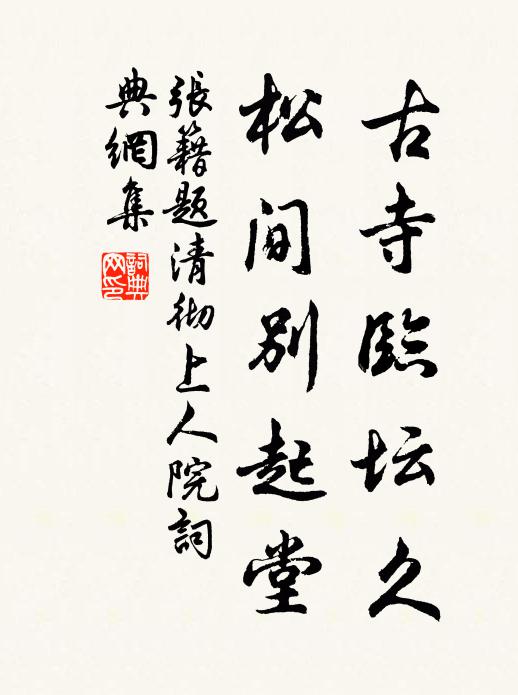 古寺臨坛久
松间别起堂
張籍題清彻上人院詞
典網集
詞典网印